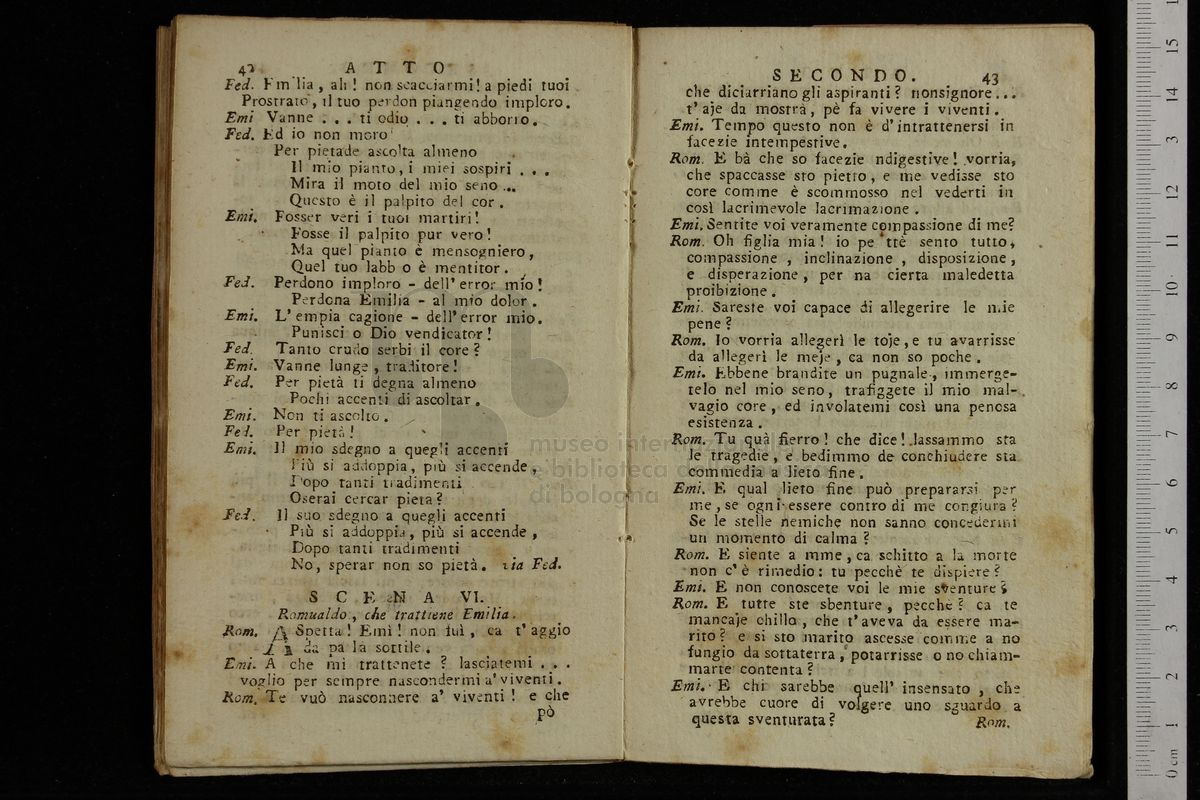 42 ATTO
Fed. Emilia, ah! non scacciarmi! a piedi tuoi
Prostrato, il tuo perdon piangendo imploro.
Emi Vanne . . . ti odio . . . ti abborro.
Fed. Ed io non moro
Per pietade ascolta almeno
Il mio pianto, i miei sospiri . . .
Mira il moto del mio seno ...
Questo è il palpito del cor.
Emi. Fosser veri i tuoi martiri!
Fosse il palpito pur vero!
Ma quel pianto è mensogniero,
Quel tuo labb o è mentitor.
Fed. Perdono imploro - dell' error mio!
Perdona Emilia - al mio dolor.
Emi. L' empia cagione - dell' error mio.
Punisci o Dio vendicator!
Fed. Tanto crudo serbi il core?
Emi. Vanne lunge, traditore!
Fed. Per pietà ti degna almeno
Pochi accenti di ascoltar.
Emi. Non ti ascolto.
Fed. Per pietà!
Emi. Il mio sdegno a quegli accenti
Più si addoppia, più si accende,
Dopo tanti tradimenti
Oserai cercar pietà?
Fed. Il suo sdegno a quegli accenti
Più si addoppia, più si accende,
Dopo tanti tradimenti
No, sperar non so pietà. via Fed.
SCENA VI.
Romualdo, che trattiene Emilia.
Rom. ASpetta! Emì! non fuì, ca t' aggio
da pa la sottile.
Emi. A che mi trattenete? lasciatemi . . .
voglio per sempre nascondermi a' viventi.
Rom. Te vuò nasconnere a' viventi! e che
pò
SECONDO. 43
che diciarriano gli aspiranti? nonsignore...
t' aje da mostrà, pè fa vivere i viventi.
Emi. Tempo questo non è d' intrattenersi in
facezie intempestive.
Rom. E bà che so facezie ndigestive! vorria,
che spaccasse sto pietto, e me vedisse sto
core comme è scommosso nel vederti in
così lacrimevole lacrimazione.
Emi. Sentite voi veramente compassione di me?
Rom. Oh figlia mia! io pe ttè sento tutto,
compassione, inclinazione, disposizione,
e disperazione, per na cierta maledetta
proibizione.
Emi. Sareste voi capace di allegerire le mie
pene?
Rom. Io vorria allegerì le toje, e tu avarrisse
da allegerì le meje, ca non so poche.
Emi. Ebbene brandite un pugnale, immerge-
telo nel mio seno, trafiggete il mio mal-
vagio core, ed involatemi così una penosa
esistenza.
Rom. Tu quà fierro! che dice! lassammo sta
le tragedie, e bedimmo de conchiudere sta
commedia a lieto fine.
Emi. E qual lieto fine può prepararsi per
me, se ogni essere contro di me congiura?
Se le stelle nemiche non sanno concedermi
un momento di calma?
Rom. E siente a mme, ca schitto a la morte
non c' è rimedio: tu pecchè te dispiere?
Emi. E non conoscete voi le mie sventure?
Rom. E tutte ste sbenture, pecchè? ca te
mancaje chillo, che t' aveva da essere ma-
rito? e si sto marito ascesse comme a no
fungio da sottaterra, potarrisse o no chiam-
marte contenta?
Emi. E chi sarebbe quell' insensato, che
avrebbe cuore di volgere uno sguardo a
questa sventurata? Rom.
museo
e biblioteca
di bologna
0 cm 1 2 3 4 5 6 7 8 9 10 11 12 13 14 15